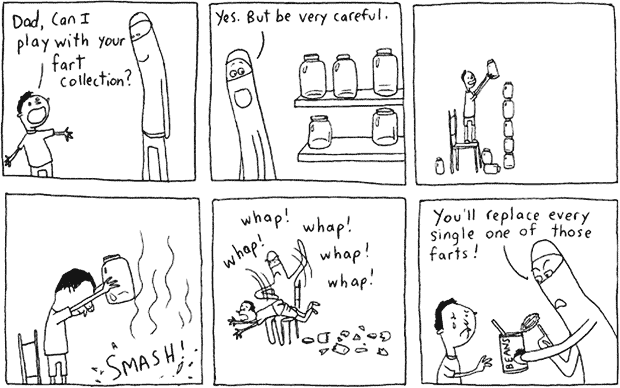 Dad, Can I
play with your
fart
collection?
Yes. But be very careful.
SMASH!
whap!
whap!
whap!
whap!
whap!
You'll replace every
single one of those
farts!
BEANS